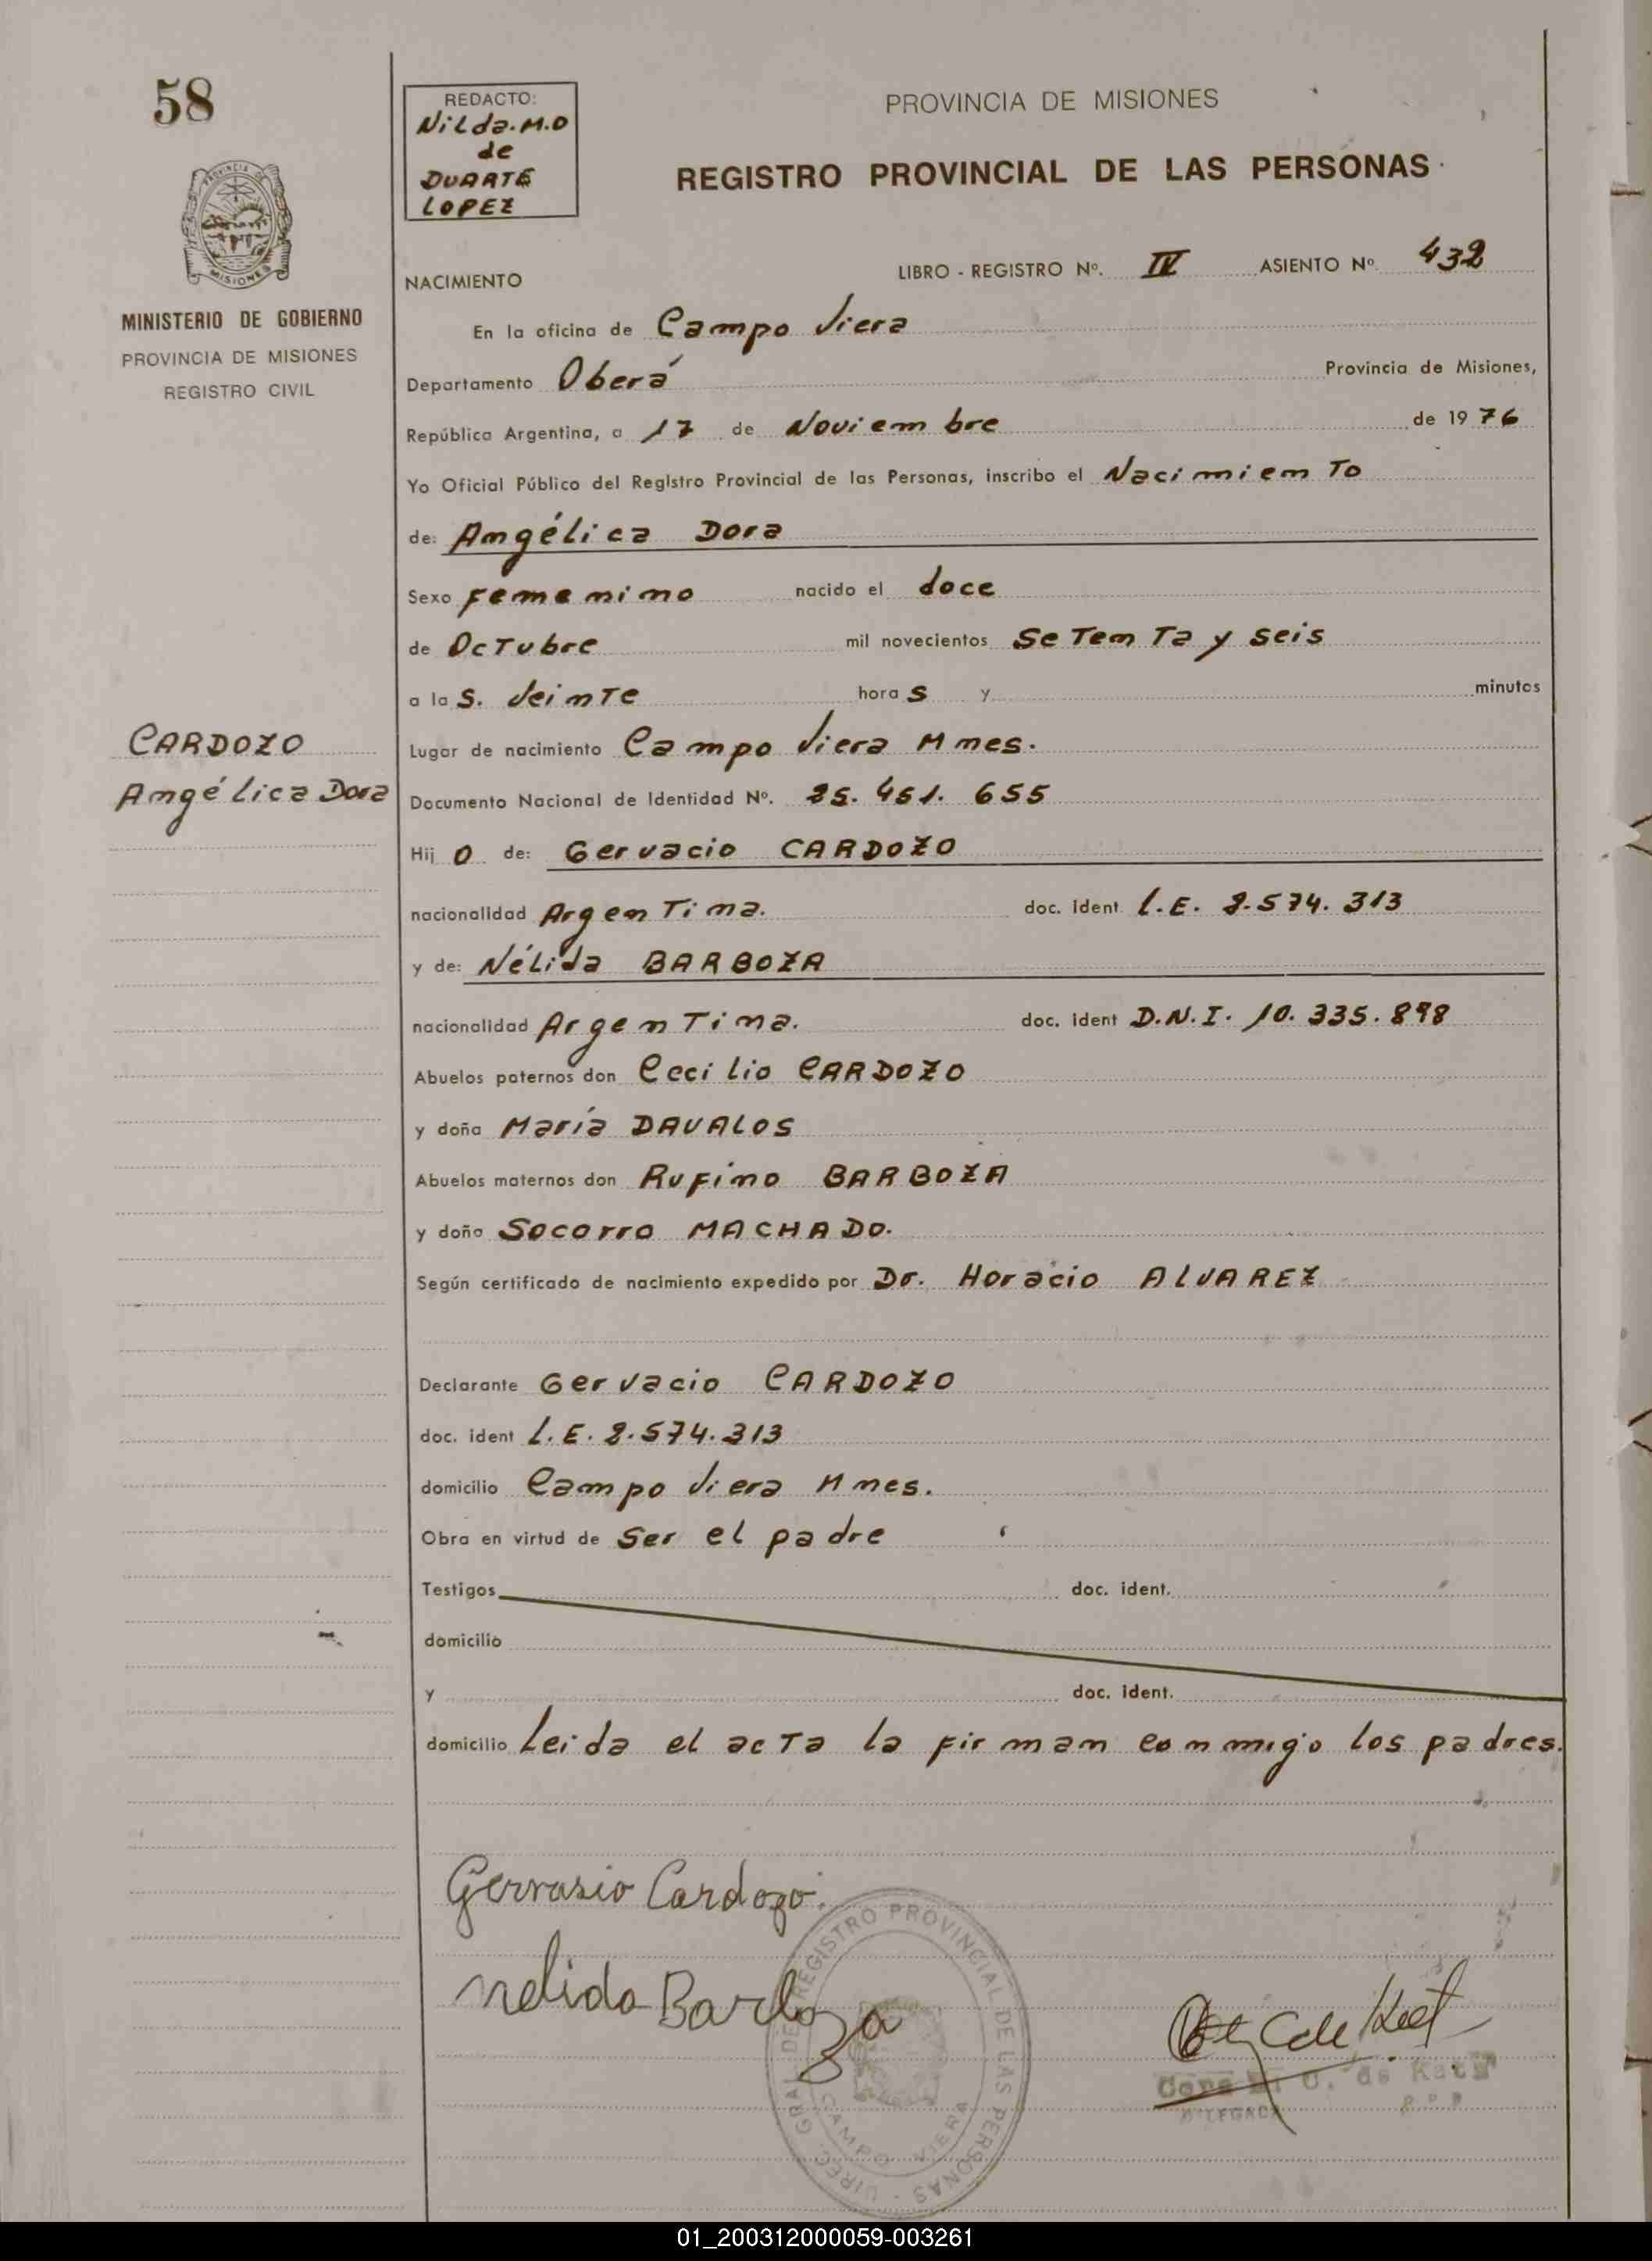 58
REDACTO:
Nilda. M. O
de
DUARTE
LOPEZ
PROVINCIA DE MISIONES
REGISTRO PROVINCIAL DE LAS PERSONAS
MISIONES
MINISTERIO DE GOBIERNO
PROVINCIA DE MISIONES
REGISTRO CIVIL
NACIMIENTO
LIBRO - REGISTRO Nº. IV ASIENTO Nº. 432
En la oficina de Campo Viera
Departamento Oberá Provincia de Misiones,
República Argentina, a 17 de Noviembre de 1976
Yo Oficial Público del Registro Provincial de las Personas, inscribo el Nacimiento
de: Angélica Dora
Sexo Femenino nacido el doce
de Octubre mil novecientos Setenta y seis
a las. Veinte horas y minutos
CARDOZO
Angélica Dora
Lugar de nacimiento Campo Viera Mnes.
Documento Nacional de Identidad Nº. 25.451.655
Hijo de: Gervacio CARDOZO
nacionalidad Argentina. doc. ident. L.E. 8.574.313
y de: Nélida BARBOZA
nacionalidad Argentina. doc. ident D.N.I. 10.335.898
Abuelos paternos don Cecilio CARDOZO
y doña María DAVALOS
Abuelos maternos don Rufino BARBOZA
y doña Socorro MACHADO.
Según certificado de nacimiento expedido por Dr. Horacio ALVAREZ
Declarante Gervacio CARDOZO
doc. ident L.E. 8.574.313
domicilio Campo Viera Mnes.
Obra en virtud de Ser el padre
Testigos doc. ident.
domicilio
y doc. ident.
domicilio Leida el acta la firman conmigo los padres.
Gervasio Cardozo.
Nelida Barboza
DIREC. GRAL. DEL REGISTRO PROVINCIAL DE LAS PERSONAS
CAMPO VIERA
C. de Katz
01_200312000059-003261